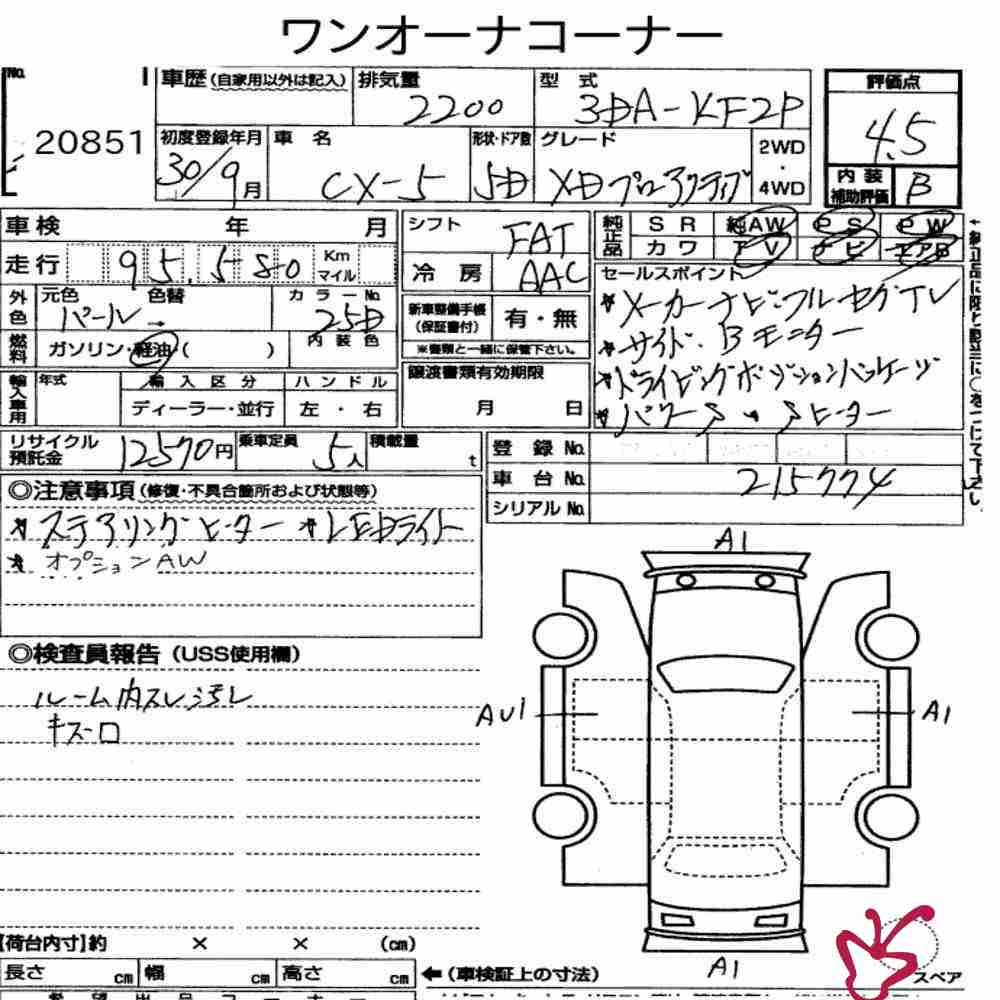 ワンオーナコーナー
No. 20851
車歴 (自家用以外は記入) 排気量 2200 型式 3DA-KF2P 評価点 4.5
初度登録年月 30/9月 車名 CX-5 形状・ドア数 5D グレード XDプロアクティブ 2WD・4WD 内装補助評価 B
車検 年 月 シフト FAT 純正品 SR 純AW PS PW
走行 95,580 Km マイル 冷房 AAC カワ TV ナビ エアB
外色 元色 パール 色替 カラーNo. 25D 内装色
セールスポイント
★メーカーナビ・フルセグTV
★サイド・Bモニター
★ドライビングポジションパッケージ
★パワーS・Sヒーター
新車整備手帳(保証書付) 有・無
※書類と一緒に保管下さい。
燃料 ガソリン・軽油( )
譲渡書類有効期限 月 日
輸入車用 年式 輸入区分 ハンドル
ディーラー・並行 左・右
リサイクル預託金 12570円 乗車定員 5人 積載量 t
登録No.
車台No. 215774
シリアルNo.
◎注意事項(修復・不具合箇所および状態等)
★ステアリングヒーター ★LEDライト
★オプションAW
◎検査員報告(USS使用欄)
ルーム内スレ汚レ
キズ小
A1
AU1
A1
A1
【荷台内寸】約 × × (cm)
長さ cm 幅 cm 高さ cm ←(車検証上の寸法)
スペア